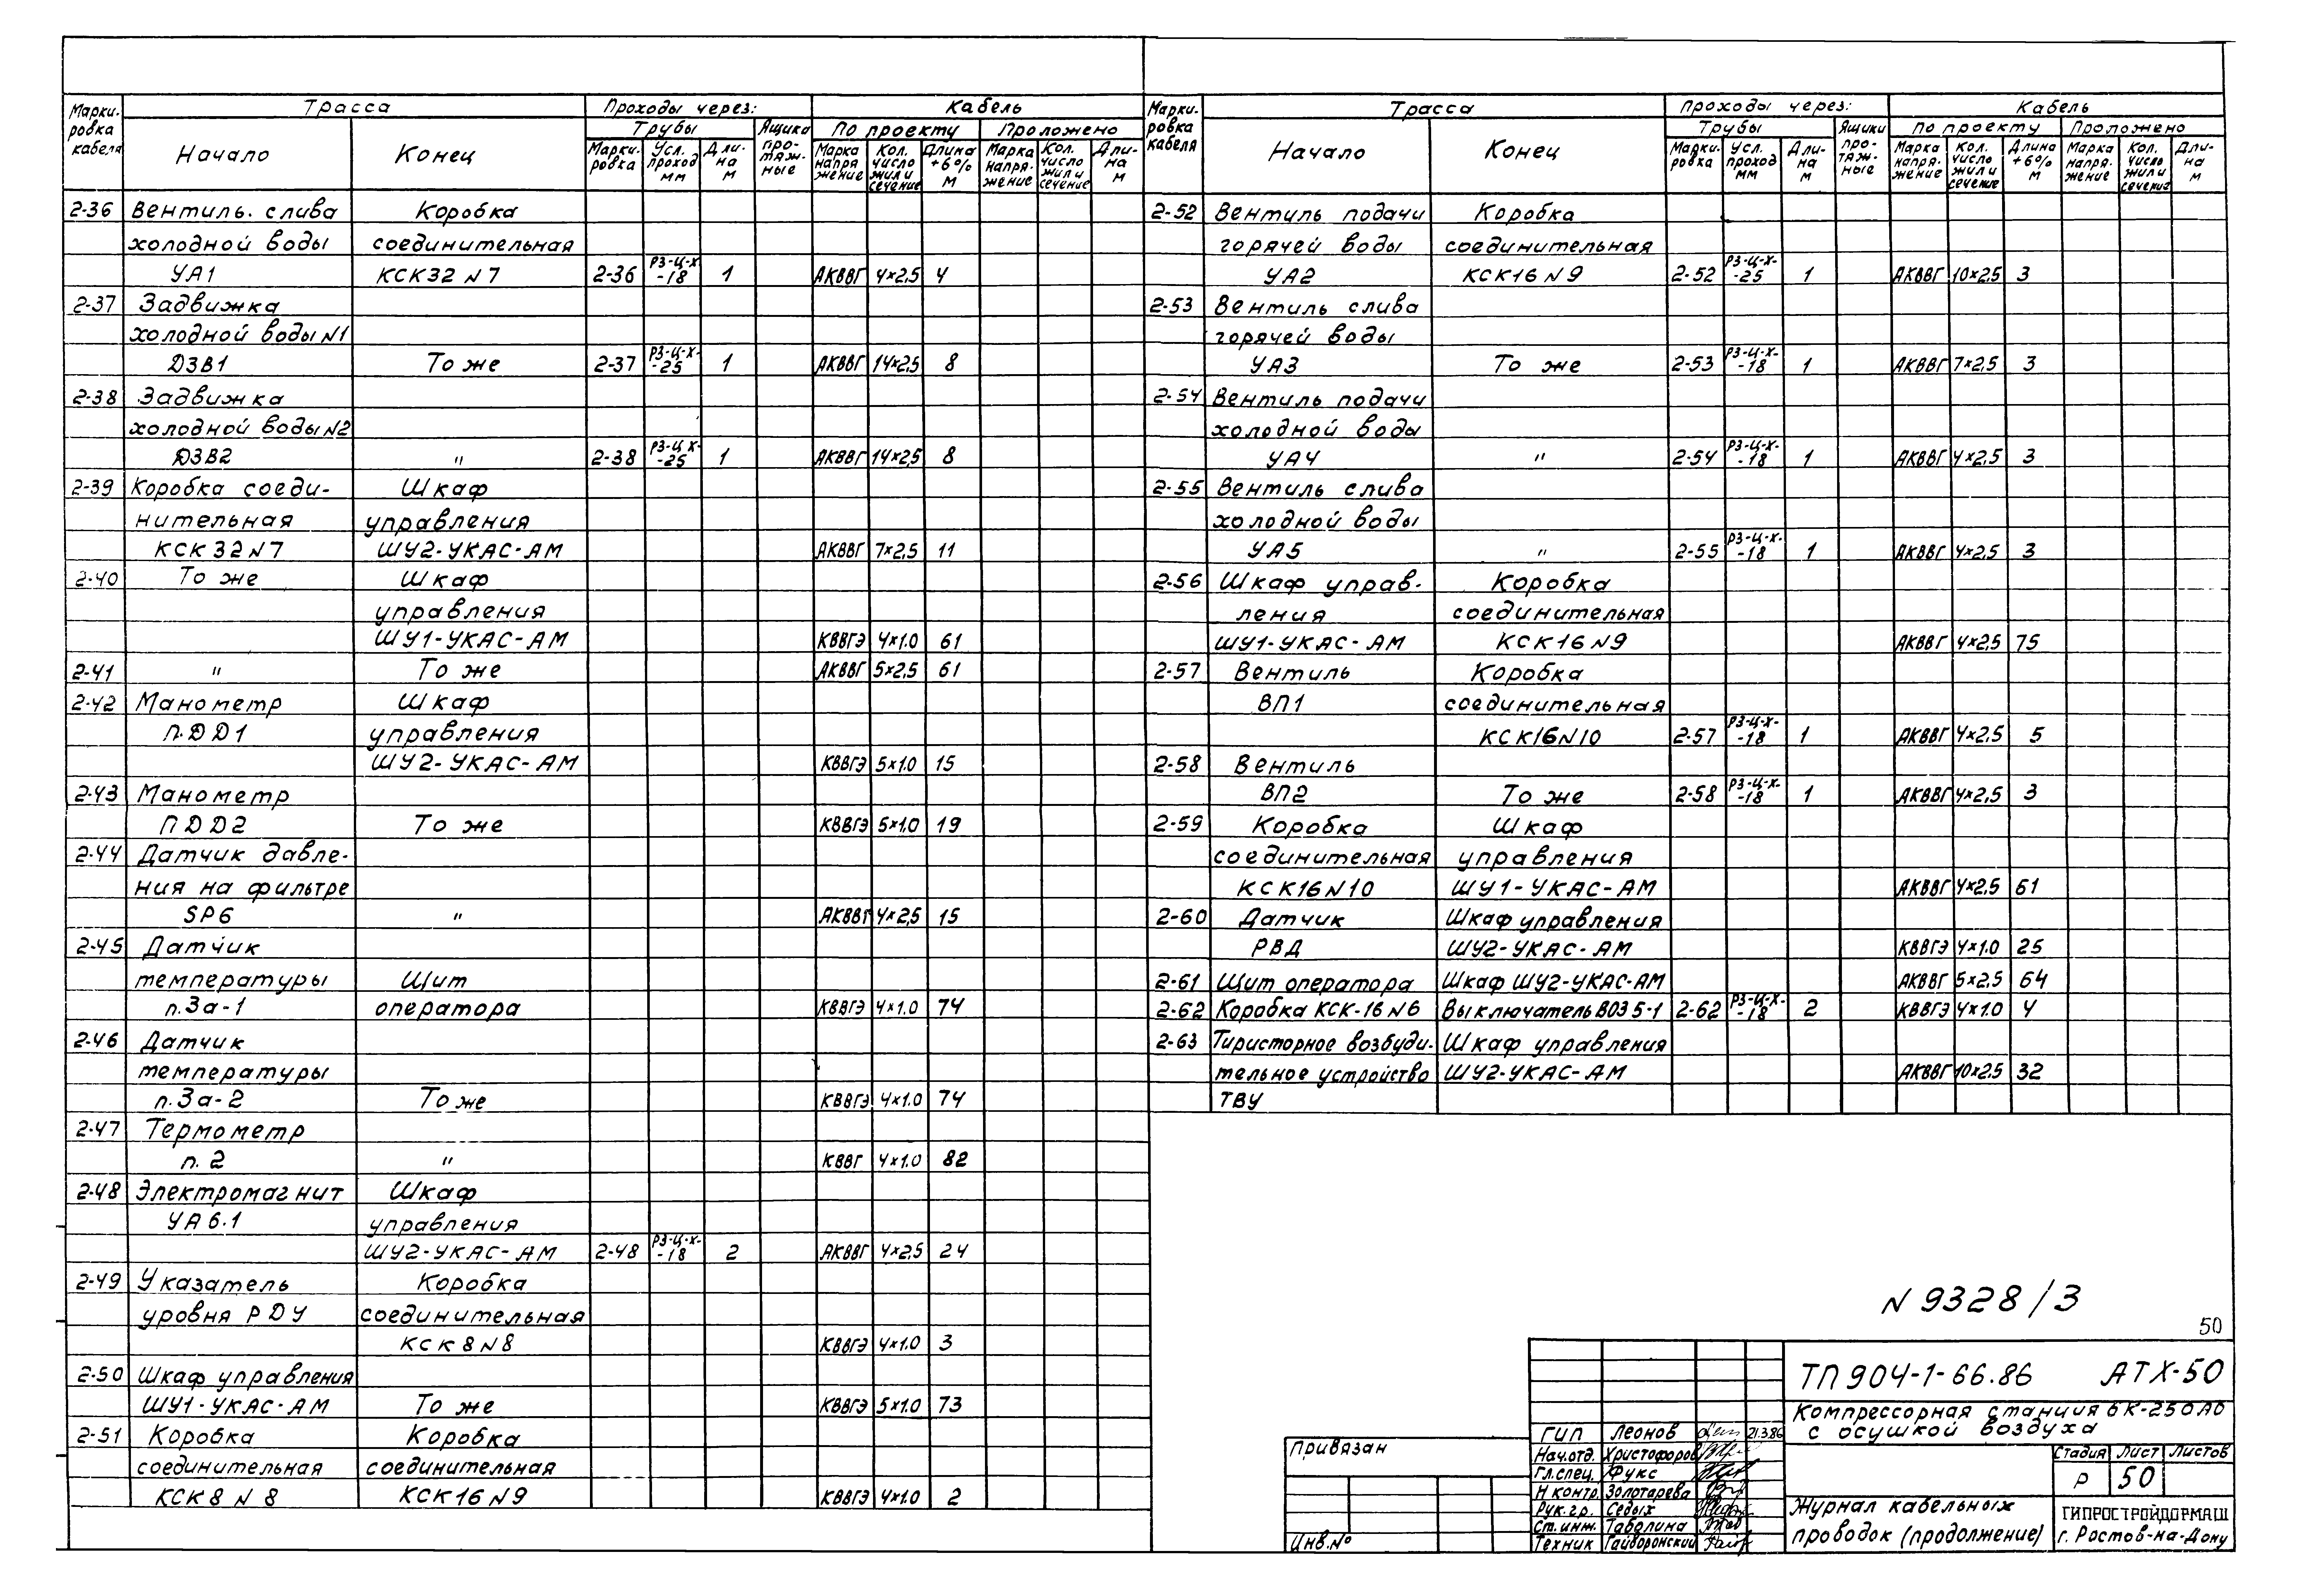 Марки-ровка кабеля | Трасса | Проходы через: | Кабель
Начало | Конец | Трубы | Ящики протяж-ные | По проекту | Проложено
Марки-ровка | Усл. проход мм | Дли-на м | Марка напря жение | Кол. число жил и сечение | Длина +6% м | Марка напря-жение | Кол. число жил и сечение | Дли-на м
2-36 Вентиль. слива Коробка
холодной воды соединительная
УА1 КСК32 N7 2-36 РЗ-Ц-Х-18 1 АКВВГ 4×2,5 4
2-37 Задвижка
холодной воды N1
ДЗВ1 То же 2-37 РЗ-Ц-Х-25 1 АКВВГ 14×2,5 8
2-38 Задвижка
холодной воды N2
ДЗВ2 " 2-38 РЗ-Ц-Х-25 1 АКВВГ 14×2,5 8
2-39 Коробка соеди- Шкаф
нительная управления
КСК32 N7 ШУ2-УКАС-АМ АКВВГ 7×2,5 11
2-40 То же Шкаф
управления
ШУ1-УКАС-АМ КВВГЭ 4×1.0 61
2-41 " То же АКВВГ 5×2,5 61
2-42 Манометр Шкаф
П.ДД1 управления
ШУ2-УКАС-АМ КВВГЭ 5×1.0 15
2-43 Манометр
ПДД2 То же КВВГЭ 5×1.0 19
2-44 Датчик давле-
ния на фильтре
SP6 " АКВВГ 4×2,5 15
2-45 Датчик
температуры Щит
п.3а-1 оператора КВВГЭ 4×1.0 74
2-46 Датчик
температуры
п.3а-2 То же КВВГЭ 4×1.0 74
2-47 Термометр
п.2 " КВВГ 4×1.0 82
2-48 Электромагнит Шкаф
УА6.1 управления
ШУ2-УКАС-АМ 2-48 РЗ-Ц-Х-18 2 АКВВГ 4×2,5 24
2-49 Указатель Коробка
уровня РДУ соединительная
КСК8 N8 КВВГЭ 4×1.0 3
2-50 Шкаф управления
ШУ1-УКАС-АМ То же КВВГЭ 5×1.0 73
2-51 Коробка Коробка
соединительная соединительная
КСК8 N8 КСК16 N9 КВВГЭ 4×1.0 2
Марки-ровка кабеля | Трасса | Проходы через: | Кабель
Начало | Конец | Трубы | Ящики про-тяж-ные | По проекту | Проложено
Марки-ровка | Усл. проход мм | Дли-на м | Марка напря-жение | Кол. число жил и сечение | Длина +6% м | Марка напря-жение | Кол. число жил и сечение | Дли-на м
2-52 Вентиль подачи Коробка
горячей воды соединительная
УА2 КСК16 N9 2-52 РЗ-Ц-Х-25 1 АКВВГ 10×2.5 3
2-53 Вентиль слива
горячей воды
УА3 То же 2-53 РЗ-Ц-Х-18 1 АКВВГ 7×2,5 3
2-54 Вентиль подачи
холодной воды
УА4 " 2-54 РЗ-Ц-Х-18 1 АКВВГ 4×2,5 3
2-55 Вентиль слива
холодной воды
УА5 " 2-55 РЗ-Ц-Х-18 1 АКВВГ 4×2,5 3
2-56 Шкаф управ- Коробка
ления соединительная
ШУ1-УКАС-АМ КСК16 N9 АКВВГ 4×2,5 75
2-57 Вентиль Коробка
ВП1 соединительная
КСК16 N10 2-57 РЗ-Ц-Х-18 1 АКВВГ 4×2,5 5
2-58 Вентиль
ВП2 То же 2-58 РЗ-Ц-Х-18 1 АКВВГ 4×2,5 3
2-59 Коробка Шкаф
соединительная управления
КСК16 N10 ШУ1-УКАС-АМ АКВВГ 4×2,5 61
2-60 Датчик Шкаф управления
РВД ШУ2-УКАС-АМ КВВГЭ 4×1.0 25
2-61 Щит оператора Шкаф ШУ2-УКАС-АМ АКВВГ 5×2,5 64
2-62 Коробка КСК-16 N6 Выключатель ВОЗ 5-1 2-62 РЗ-Ц-Х-18 2 КВВГЭ 4×1.0 4
2-63 Тиристорное возбуди- Шкаф управления
тельное устройство ШУ2-УКАС-АМ АКВВГ 10×2.5 32
ТВУ
N 9328/3
50
ТП 904-1-66.86 АТХ-50
Компрессорная станция 6К-250АО
с осушкой воздуха
Привязан
Инв. №
ГИП Леонов 21.3.86
Нач.отд. Христофоров
Гл.спец. Фукс
Н контр. Золотарева
Рук.гр. Седых
Ст.инж. Таболина
Техник Гайворонский
Стадия Лист Листов
Р 50
Журнал кабельных
проводок (продолжение)
ГИПРОСТРОЙДОРМАШ
г. Ростов-на-Дону